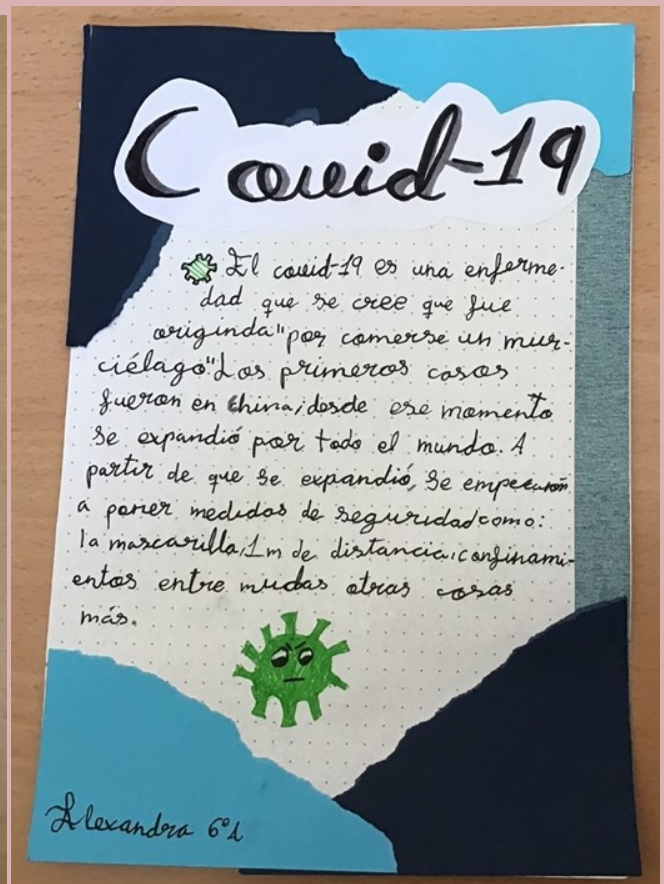 Covid-19
El covid-19 es una enferme-
dad que se cree que fue
originda "por comerse un mur-
ciélago" Los primeros casos
fueron en China, desde ese momento
se expandió por todo el mundo. A
partir de que se expandió, se empezaron
a poner medidas de seguridad como:
la mascarilla, 1m de distancia, confinami-
entos entre muchas otras cosas
más.
Alexandra 6ºA